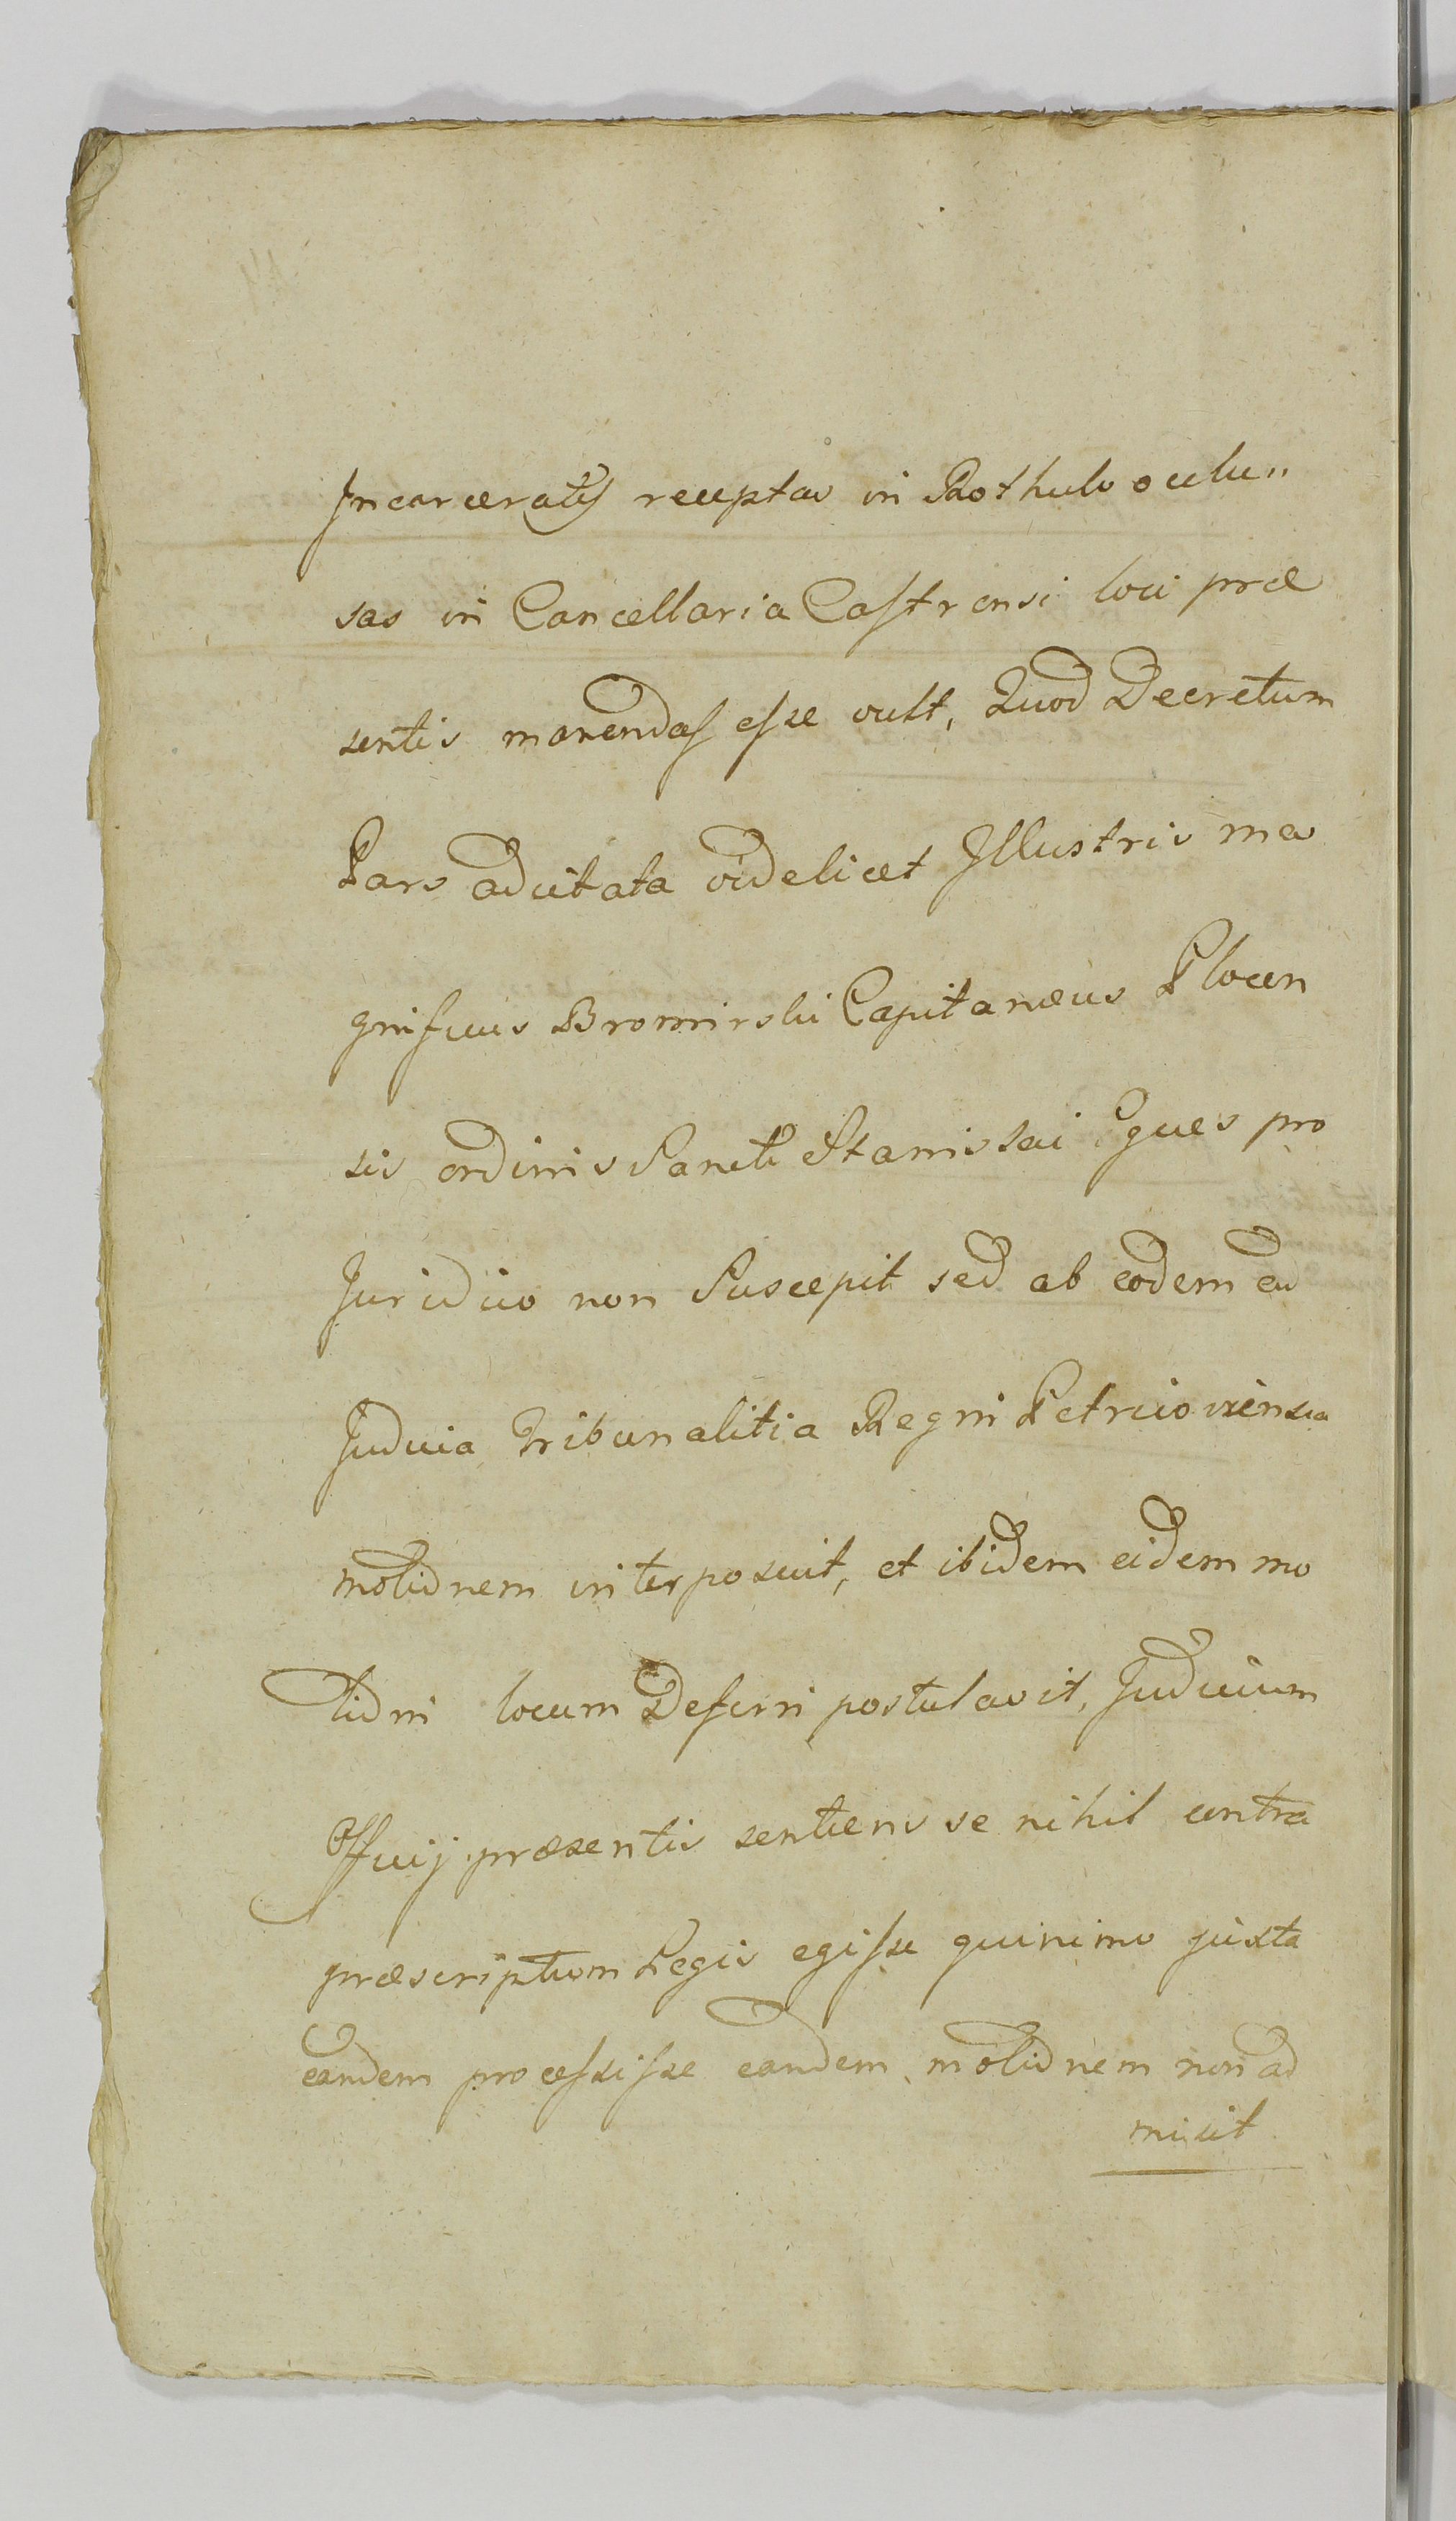 Incarceratis receptas in Rothulo oclu„
sas in Cancellaria Castrensi loci præ
sentis manendas esse vult, Quod Decretum
Pars adcitata videlicet Illustris ma
gnificus Bromirski Capitaneus Plocen
sis ordinis Sancti Stanislai Eques pro
Juridico non Suscepit sed ab eodem ad
Judicia Tribunalitia Regni Petricoviensia
motidnem interposuit, et ibidem eidem mo
tidni locum Deferri postulavit, Judicium
Officij præsentis sentiens se nihil contra
præscriptum Legis egisse quinimo juxta
eandem processisse eandem motidnem non ad
misit